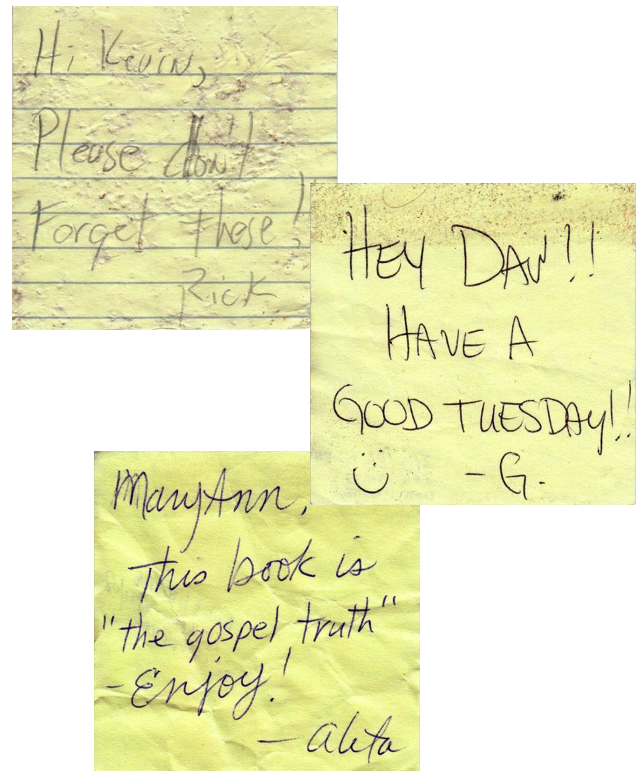 Hi Kevin,
Please don't
Forget these!
Rick
HEY DAN!!
HAVE A
GOOD TUESDAY!!
-G.
MaryAnn,
This book is
"the gospel truth"
-Enjoy!
- Aleta